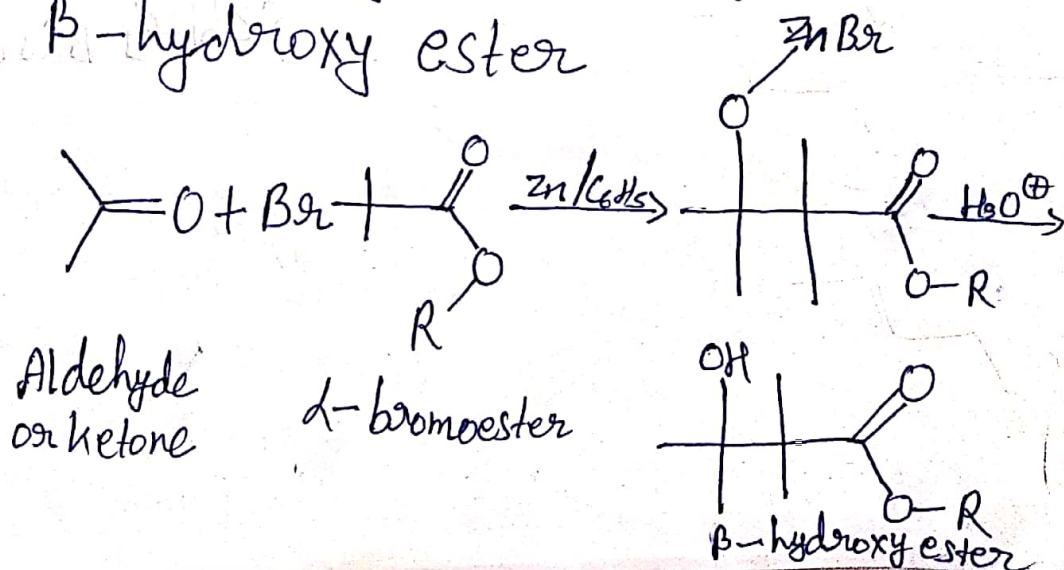 β-hydroxy ester
ZnBr
O
O
O
=O + Br
Zn/C6H5
H3O⊕
O
R
O-R
Aldehyde
or ketone
α-bromoester
OH
O
O-R
β-hydroxy ester